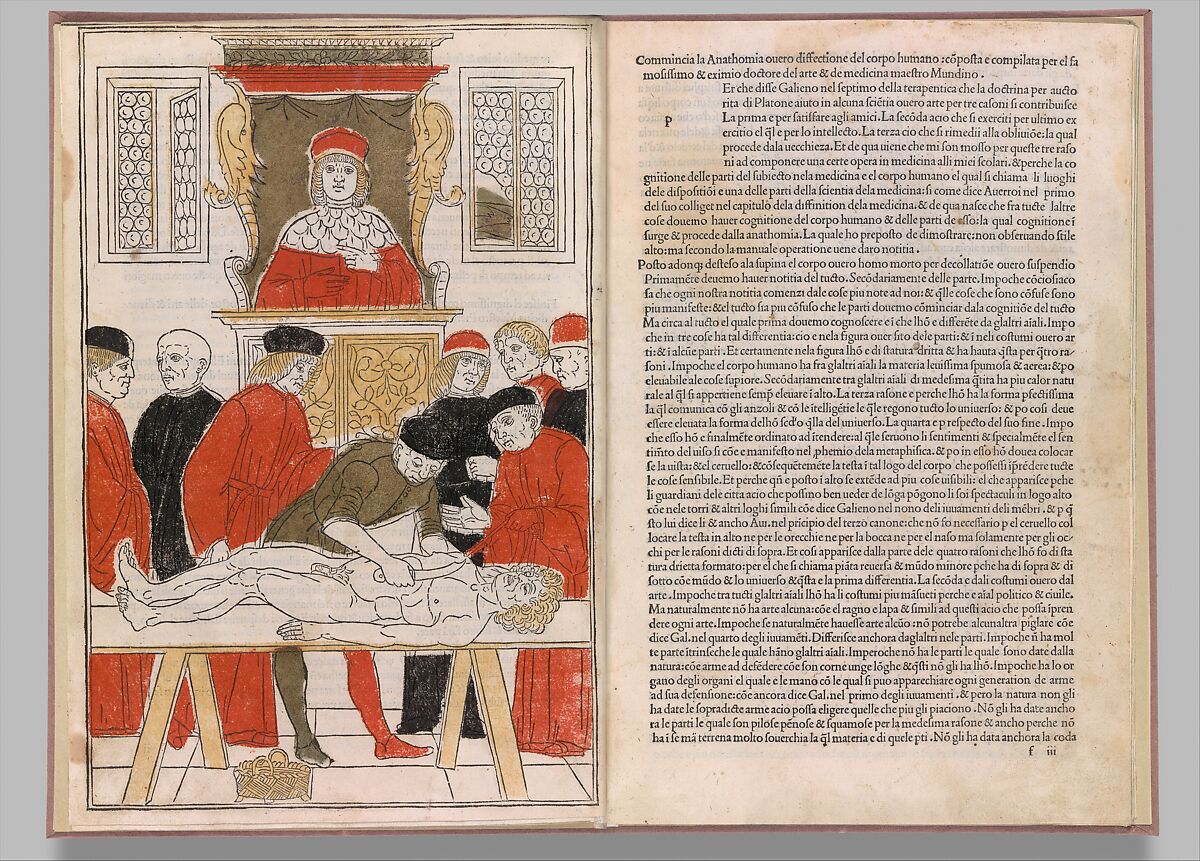 Commincia la Anathomia ouero dissectione del corpo humano: cōposta e compilata per el fa
mosissimo & eximio doctore del arte & de medicina maestro Mundino .
Er che disse Galieno nel septimo della terapentica che la doctrina per aucto
rita di Platone aiuto in alcuna sciētia ouero arte per tre casoni si contribuisce
P
La prima e per satisfare agli amici. La secōda acio che si exerciti per ultimo ex
ercitio el q̄l e per lo intellecto. La terza cio che si rimedii alla obliuiōe: la qual
procede dala uecchieza. Et de qua uiene che mi son mosso per queste tre raso
ni ad componere una certe opera in medicina alli miei scolari. &perche la co
gnitione delle parti del subiecto nela medicina e el corpo humano el qual si chiama li luoghi
dele dispositiōi e una delle parti della scientia dela medicina: si come dice Auerroi nel primo
del suo colliget nel capitulo dela diffinition dela medicina. & de qua nasce che fra tucte laltre
cose douemo hauer cognitione del corpo humano & delle parti de esso: la qual cognitione i
surge & procede dalla anathomia. La quale ho preposto de dimostrare: non obseruando stile
alto: ma secondo la manuale operatione uene daro notitia .
Posto adonq; desteso ala supina el corpo ouero homo morto per decollatiōe ouero suspendio
Primamēte deuemo hauer notitia del tucto. Secōdariamente delle parte. Impoche cōciosiaco
sa che ogni nostra notitia comenzi dale cose piu note ad noi: & q̄lle cose che sono cōfuse sono
piu manifeste: &el tucto sia piu cōfuso che le parti douemo cōminciar dala cognitiōe del tucto
Ma circa al tucto el quale prima douemo cognoscere e ī che lhō e differēte da glaltri aīali. Impo
che in tre cose ha tal differentia: cio e nela figura ouer sito dele parti: & ī neli costumi ouero ar
ti: & ī alcūe parti . Et certamente nela figura lhō e di statura dritta & ha hauta q̄sta per q̄tro ra/
soni . Impoche el corpo humano ha fra glaltri aīali la materia leuissima spumosa & aerea: &po
eleuabile ale cose supiore. Secōdariamente tra glaltri aīali di medesima q̄tita ha piu calor natu
rale al q̄l si appertiene semp̄ eleuare ī alto. La terza rasone e perche lhō ha la forma pfectissima
la q̄l comunica cō gli anzoli & cō le ītelligētie le q̄le regono tucto lo uniuerso: & po cosi deue
essere eleuata la forma delhō secōdo q̄lla del uniuerso. La quarta e p respecto del suo fine . Impo
che esso hō e finalmēte ordinato ad ītendere: al q̄le seruono li sentimenti & specialmēte el sen
timēto del uiso si cōe e manifesto nel phemio dela metaphisica. & po in esso hō douea colocar
se la uista: &el ceruello: &cōsequētemēte la testa ī tal logo del corpo che possessi īprēdere tucte
le cose sensibile. Et perche q̄n̄ e posto ī alto se extēde ad piu cose uisibili: el che apparisce pche
li guardiani dele citta acio che possino ben ueder de lōga pōgono li soi spectaculi in logo alto
cōe nele torri & altri loghi simili cōe dice Galieno nel nono deli iuuamenti deli mēbri . & p q̄
sto lui dice li & ancho Aui. nel pricipio del terzo canone: che nō fo necessario p el ceruello col
locare la testa in alto ne per le orecchie ne per la bocca ne per el naso ma solamente per gli oc/
chi per le rasoni dicti di sopra. Et cosi apparisce dalla parte dele quatro rasoni che lhō fo di sta
tura drietta formato: per el che si chiama piāta reuersa & mūdo minore pche ha di sopra & di
sotto cōe mūdo & lo uniuerso &q̄sta e la prima differentia. La secōda e dali costumi ouero dal
arte. Impoche tra tucti glaltri aīali lhō ha li costumi piu māsueti perche e aīal politico & ciuile.
Ma naturalmente nō ha arte alcuna: cōe el ragno e lapa & simili ad questi acio che possa īpren
dere ogni arte. Impoche se naturalmēte hauesse arte alcūo: nō potrebe alcunaltra piglare cōe
dice Gal. nel quarto degli iuuamēti. Differisce anchora daglaltri nele parti. Impoche n̄ ha mol
te parte ītrinseche le quale hāno glaltri aīali. Imperoche nō ha le parti le quale sono date dalla
natura: cōe arme ad defēdere cōe son corne unge lōghe &q̄sti nō gli ha lhō. Impoche ha lo or
gano degli organi el quale e le mano cō le qual si puo apparechiare ogni generation de arme
ad sua defensione: cōe ancora dice Gal. nel primo degli iuuamenti . & pero la natura non gli
ha date le sopradicte arme acio possa eligere quelle che piu gli piaciono . Nō gli ha date ancho
ra le parti le quale son pilose pēnose & squamose per la medesma rasone & ancho perche nō
ha ī se mā terrena molto souerchia la q̄l materia e di quele pti . Nō gli ha data anchora la coda
f iii